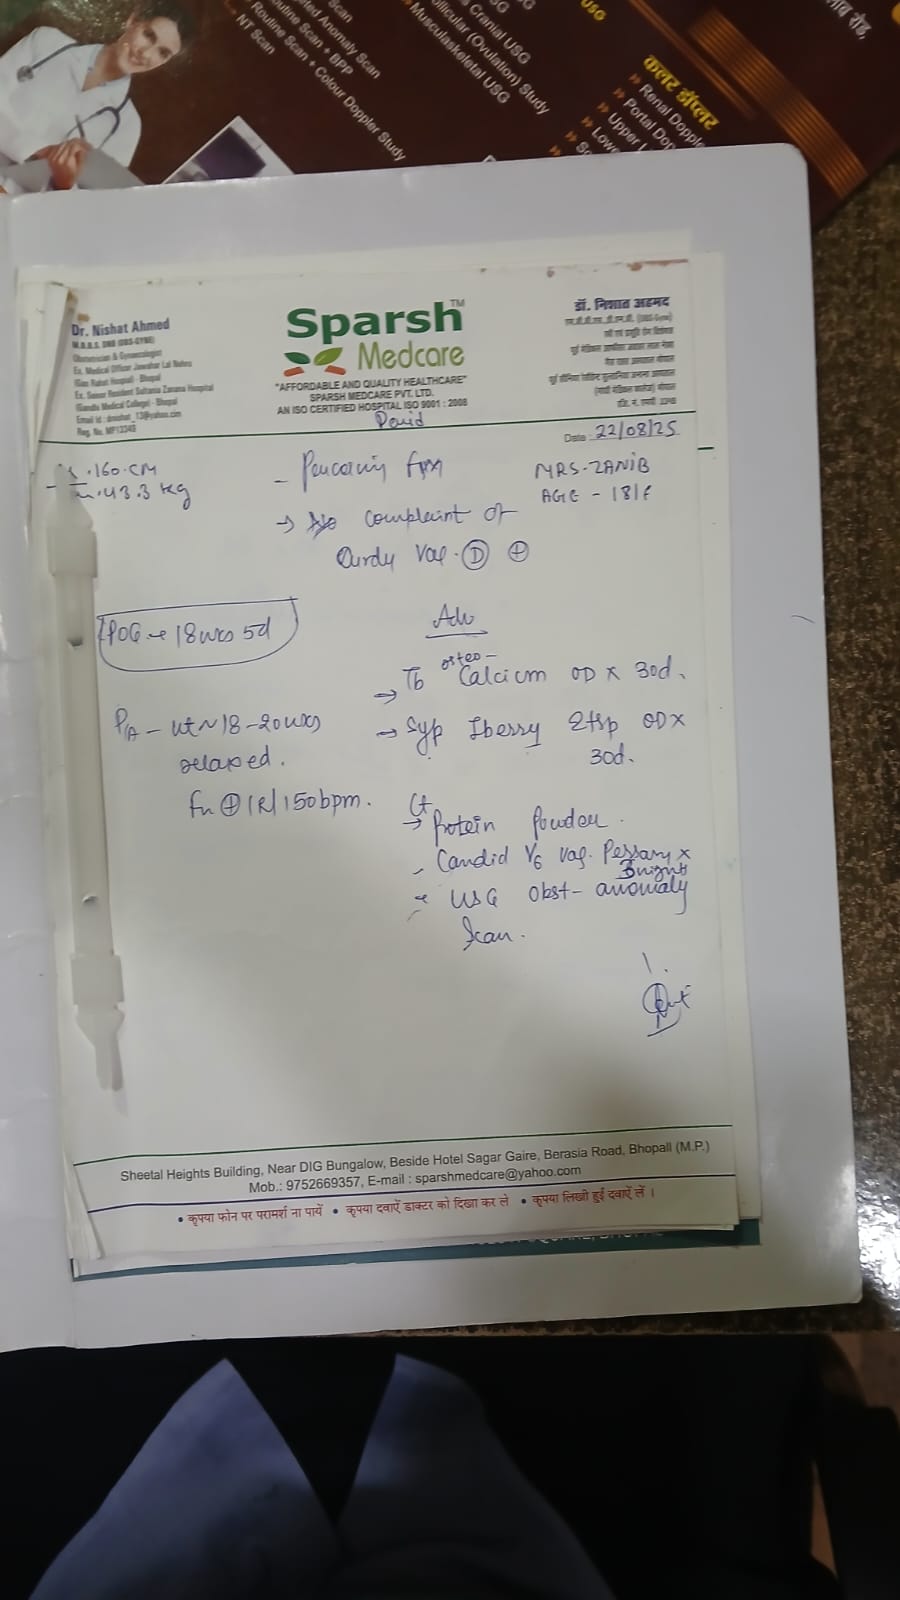 Scan
ted Anomaly Scan
utine Scan + BPP
Routine Scan + Colour Doppler Study
NT Scan
Cranial USG
ollicular (Ovulation) Study
Musculoskeletal USG
USG
कलर डॉप्लर
Renal Dopple
Portal Dop
Upper
Low
रोड,
Dr. Nishat Ahmed
M.B.B.S. DNB (OBS-GYNE)
Obstetrician & Gynaecologist
Ex. Medical Officer Jawahar Lal Nehru
Hospital - Bhopal
Ex. Senior Resident Sultania Zanana Hospital
(Gandhi Medical College) - Bhopal
Reg. No. MP13349
Sparsh™
Medcare
"AFFORDABLE AND QUALITY HEALTHCARE"
SPARSH MEDCARE PVT. LTD.
AN ISO CERTIFIED HOSPITAL ISO 9001 : 2008
डॉ. निशात अहमद
Date : 22/08/25
160.CM
43.3 kg
MRS-ZANIB
AGE - 18/F
→ complaint of
Curdy Vag. D +
POG → 18wks 5d
Adv
→ Tb osteo- Calcium OD x 30d.
→ Syp Iberry 2tsp OD x
30d.
P/A - ut ~ 18-20wks
relaxed.
+ /R/ 150bpm.
Ct
→ Protein Powder.
- Candid V6 Vag. Pessary x
3night
USG Obst- anomaly
Scan.
Sheetal Heights Building, Near DIG Bungalow, Beside Hotel Sagar Gaire, Berasia Road, Bhopall (M.P.)
Mob.: 9752669357, E-mail : sparshmedcare@yahoo.com
• कृपया फोन पर परामर्श ना पायें • कृपया दवाऐं डाक्टर को दिखा कर ले • कृपया लिखी हुई दवाऐं लें ।